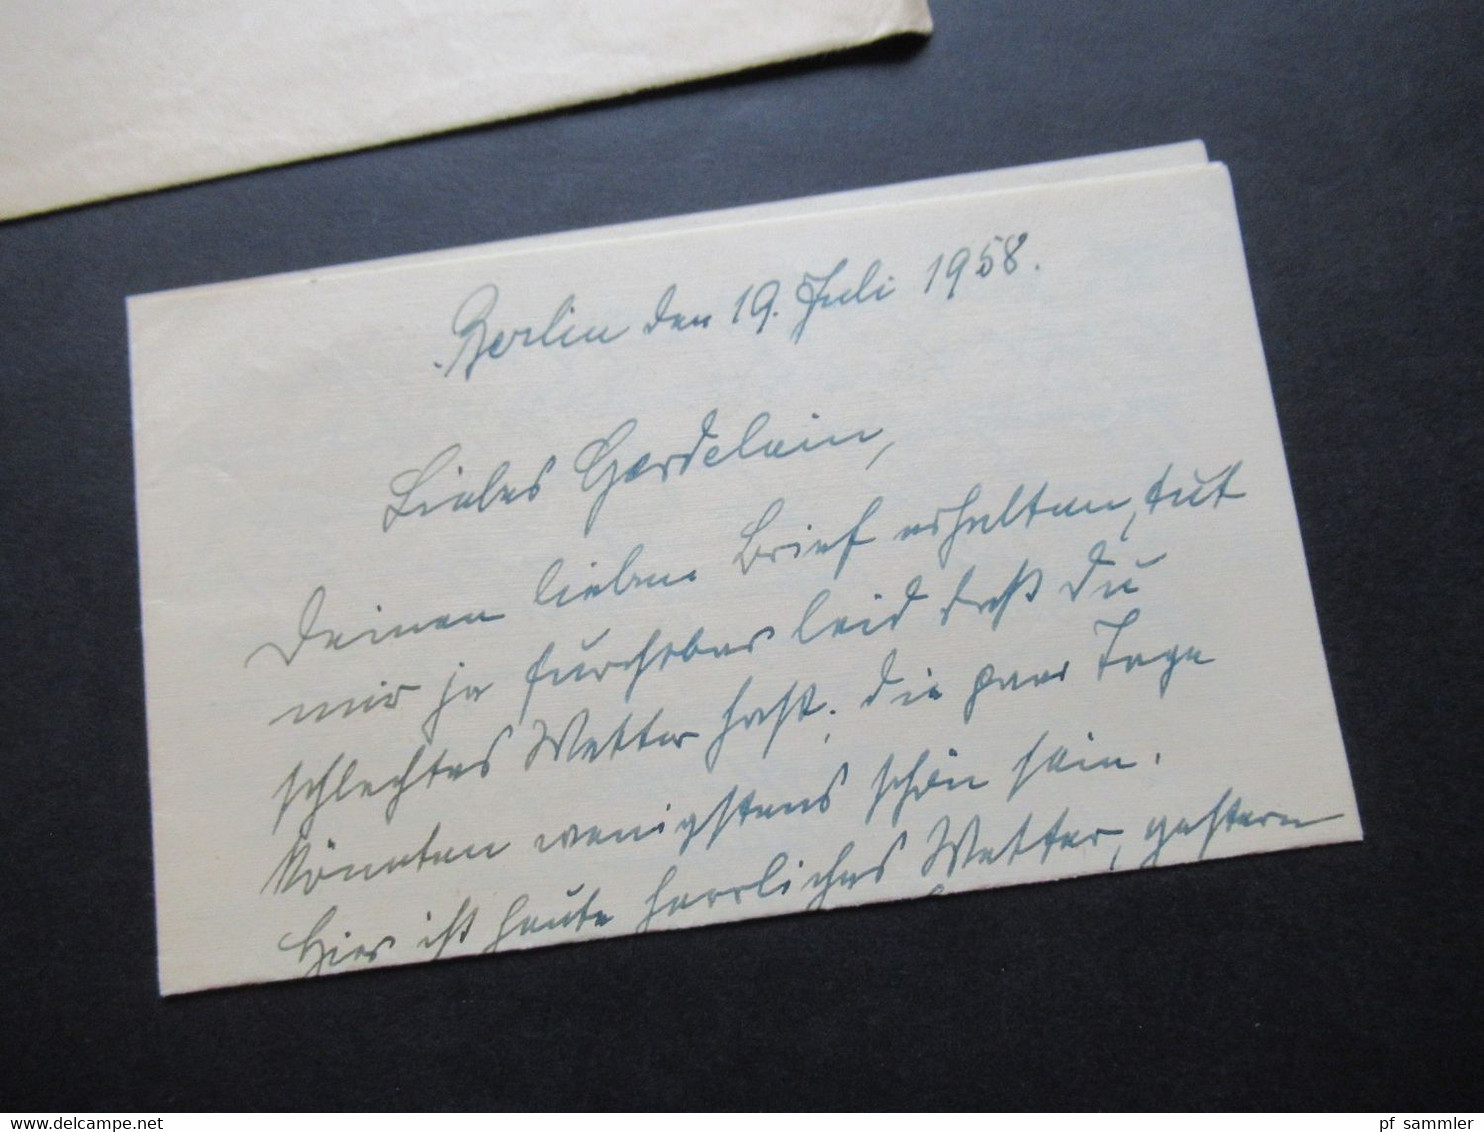 Berlin den 19. Juli 1958.
Liebes Gerdelein,
Deinen lieben Brief erhalten, tut
mir ja furchtbar leid daß Du
schlechtes Wetter hast. Die paar Tage
könnten wenigstens schön sein.
Hier ist heute herrliches Wetter, gestern
pf_sammler